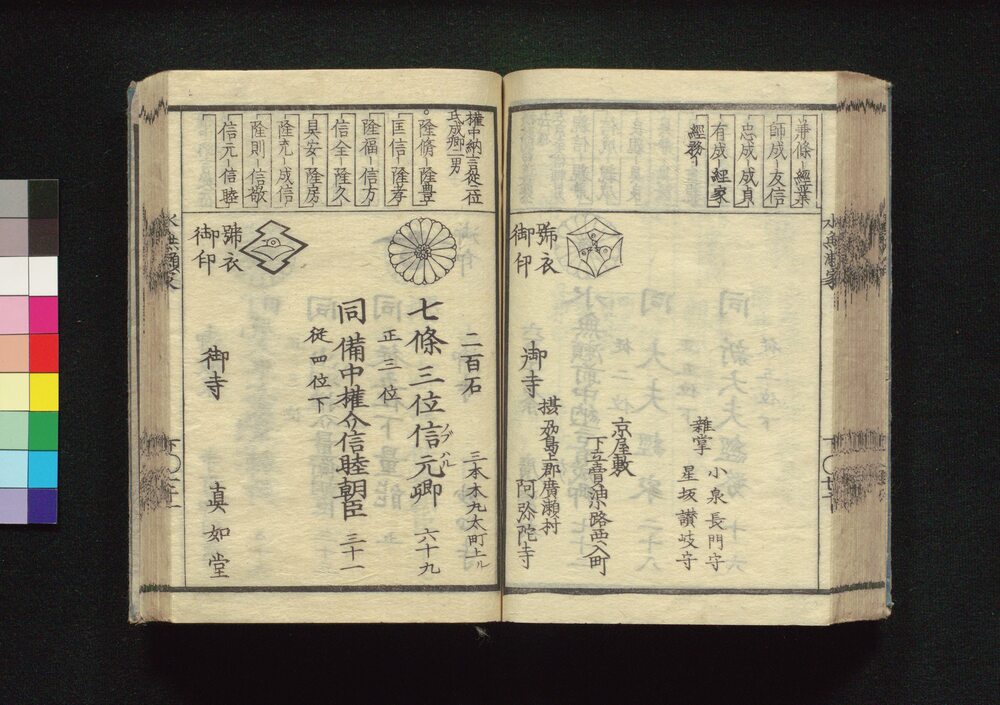 兼條-經業
師成-友信
忠成-成貞
有成-經家
經務-
號衣
御印
雜掌
小泉長門守
星坂讃岐守
京屋敷
下立賣油路西入町
御寺
摂刕島上郡廣瀬村
阿弥陀寺
水無瀬家
權中納言從二位
氏成卿二男
隆脩-隆豊
匡信-隆孝
隆福-信方
信全-隆久
具安-隆房
隆充-成信
隆則-信敬
信元-信睦
號衣
御印
二百石
三本木丸太町上ル
七條三位信元卿
ノブハル
六十九
正三位
同備中權介信睦朝臣
三十一
從四位下
御寺
真如堂
水無瀬家